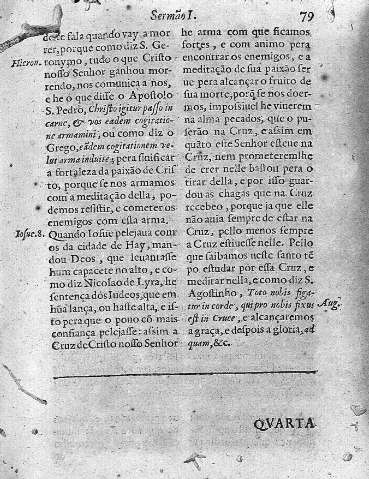 Sermão I.
79
deste fala quando vay a mor
rer, porque como diz S. Ge-
Hieron.
ronymo, tudo o que Cristo
nosso Senhor ganhou mor-
rendo, nos comunica a nos,
e he o que disse o Apostolo
S. Pedro, Christo igitur passo in
carne, & vos eadem cogitatio-
ne armamini, ou como diz o
Grego, eadem cogitationem ve-
lut arma induite; pera sinificar
a fortaleza da paixão de Cris
to, porque se nos armamos
com a meditação della, po-
demos resistir, e cometer os
enemigos com essa arma.
Iosue. 8.
Quando Iosue pelejava con
tra os da cidade de Hay, man-
dou Deos, que levantasse
hum capacete no alto, e co-
mo diz Nicolao de Lyra, he
sentença dos Iudeos, que em
hũa lança, ou haste alta, e is-
to pera que o povo cõ mais
confiança pelejasse: assim a
Cruz de Cristo nosso Senhor
he arma com que ficamos
fortes, e com animo pera
encontrar os enemigos, e a
meditação de sua paixão ser
ve pera alcançar o fruito de
sua morte, porq̃ se nos doer-
mos, impossivel he vivérem
na alma pecados, que o pu-
serão na Cruz, e assim em
quãto elle Senhor esteve na
Cruz, nem prometerem lhe
de crer nelle bastou pera o
tirar della, e por isso guar-
dou as chagas que na Cruz
recebeo, porque ja que elle
não avia sempre de estar na
Cruz, pello menos sempre
a Cruz estivesse nelle. Pello
que saibamos neste santo tẽ
po estudar por essa Cruz, e
meditar nella, e como diz S.
Agostinho, Toto nobis figa-
tur in corde, qui pro nobis fixus
Aug.
est in Cruce, e alcançaremos
a graça, e despois a gloria, ad
quam, &c.
QVARTA